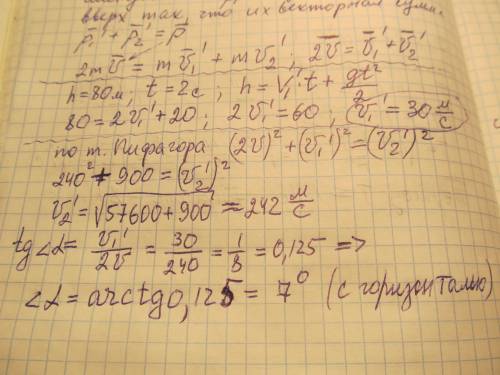 вверх так, что их векторная сумм.
p̄₁' + p̄₂' = p̄
2m v̄ = m v̄₁' + m v̄₂' ; 2v̄ = v̄₁' + v̄₂'
h = 80 м; t = 2 с; h = v₁'·t + gt²/2
80 = 2v₁' + 20; 2v₁' = 60; v₁' = 30 м/с
по т. Пифагора (2v)² + (v₁')² = (v₂')²
240² + 900 = (v₂')²
v₂' = √57600+900 = 242 м/с
tg∠α = v₁'/2v = 30/240 = 1/8 = 0,125 =>
∠α = arctg 0,125 = 7° (с горизонталью)